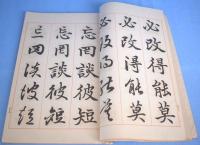 必改得能莫
必改得能莫
必改得能莫
忘罔談彼短
忘罔談彼短
忘罔談彼短